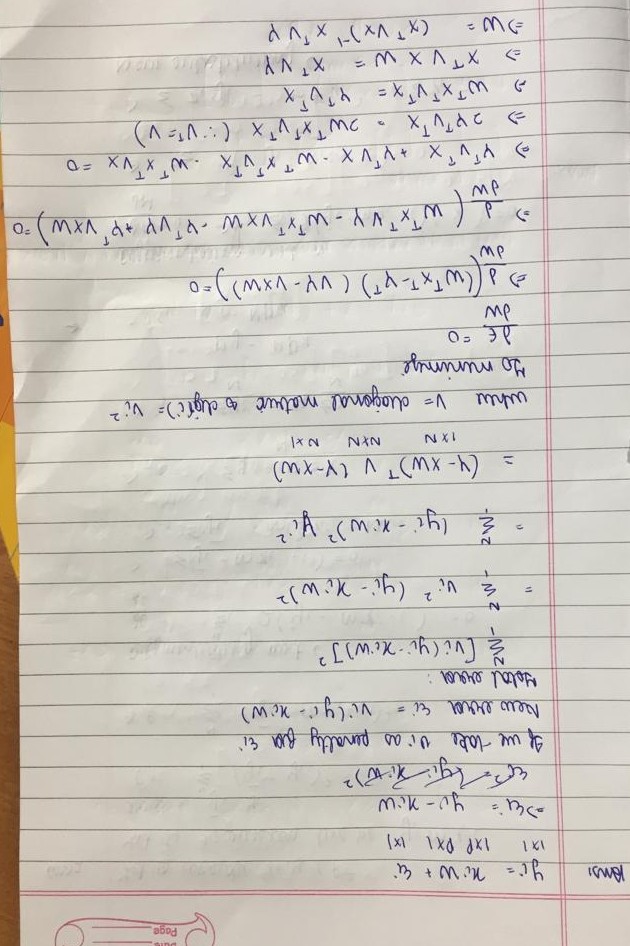 Page
Ans:
yi = xiW + εi
1×1 1×P P×1 1×1
⇒ εi = yi - xiW
εi² = (yi - xiW)²
If we take vi as penalty for εi
New error εi = vi(yi - xiW)
Total error:
N Σ 1 [vi(yi - xiW)]²
= N Σ 1 vi² (yi - xiW)²
= N Σ 1 (yi - xiW)² vi²
= (Y - XW)ᵀ V (Y - XW)
1×N N×N N×1
where V = diagonal matrix & dig(i) = vi²
To minimize
∂ε/∂W = 0
⇒ ∂/∂W ((WᵀXᵀ - Yᵀ) (VY - VXW)) = 0
⇒ ∂/∂W (WᵀXᵀVY - WᵀXᵀVXW - YᵀVY + YᵀVXW) = 0
⇒ YᵀVᵀX + YᵀVX - WᵀXᵀVᵀX - WᵀXᵀVX = 0
⇒ 2YᵀVᵀX = 2WᵀXᵀVᵀX (∵ Vᵀ = V)
⇒ WᵀXᵀVᵀX = YᵀVᵀX
⇒ XᵀVXW = XᵀVY
⇒ W = (XᵀVX)⁻¹ XᵀVY